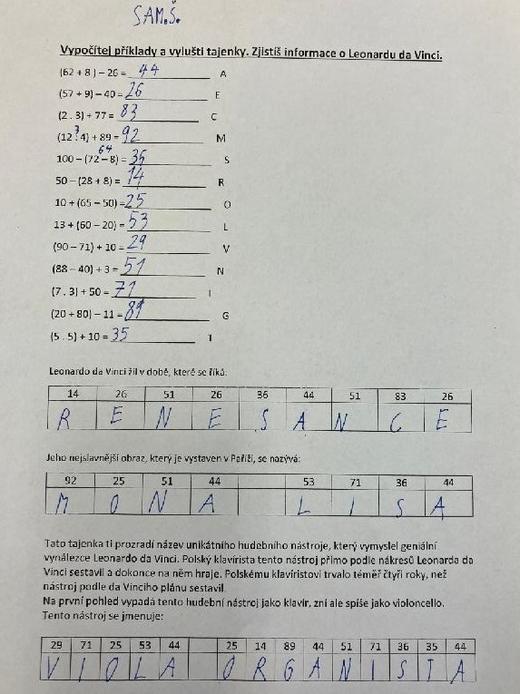 SAM.Š.
Vypočítej příklady a vylušti tajenky. Zjistíš informace o Leonardu da Vinci.
(62 + 8 ) – 26 = 44 A
(57 + 9) – 40 = 26 E
(2 . 3) + 77 = 83 C
3
(12 : 4) + 89 = 92 M
64
100 – (72 – 8) = 36 S
50 – (28 + 8) = 14 R
10 + (65 – 50) = 25 O
13 + (60 – 20) = 53 L
(90 – 71) + 10 = 29 V
(88 – 40) + 3 = 51 N
(7 . 3) + 50 = 71 I
(20 + 80) – 11 = 89 G
(5 . 5) + 10 = 35 T
Leonardo da Vinci žil v době, které se říká:
14 26 51 26 36 44 51 83 26
R E N E S A N C E
Jeho nejslavnější obraz, který je vystaven v Paříži, se nazývá:
92 25 51 44 53 71 36 44
M O N A L I S A
Tato tajenka ti prozradí název unikátního hudebního nástroje, který vymyslel geniální
vynálezce Leonardo da Vinci. Polský klavírista tento nástroj přímo podle nákresů Leonarda da
Vinci sestavil a dokonce na něm hraje. Polskému klavíristovi trvalo téměř čtyři roky, než
nástroj podle da Vinciho plánu sestavil.
Na první pohled vypadá tento hudební nástroj jako klavír, zní ale spíše jako violoncello.
Tento nástroj se jmenuje:
29 71 25 53 44 25 14 89 44 51 71 36 35 44
V I O L A O R G A N I S T A